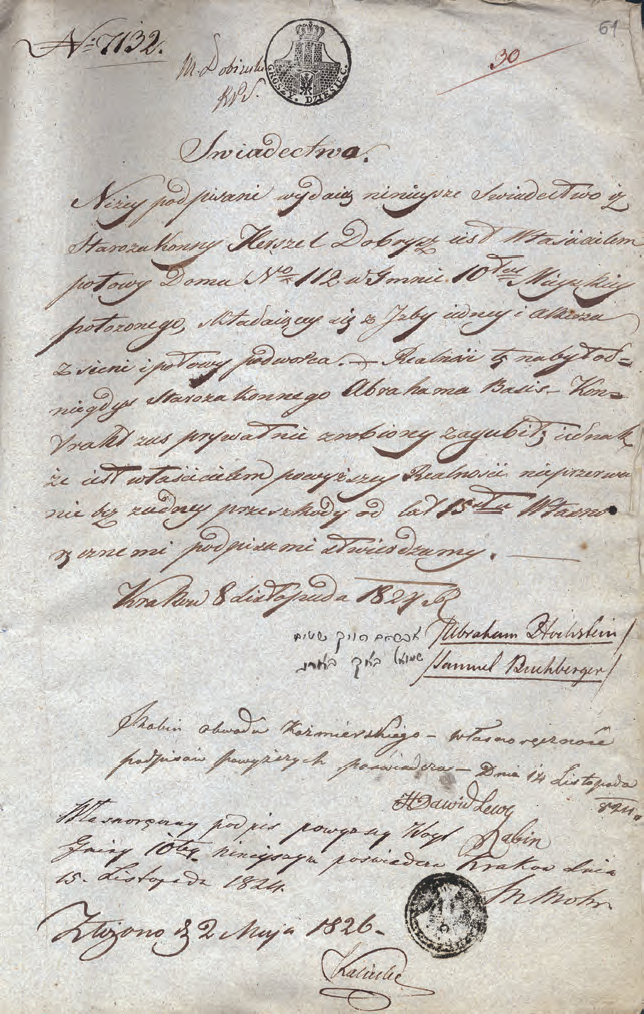 61
No 7132.
30
GROSZY. DZIESIĘĆ.
Swiadectwo.
Niżey podpisani wydaią nineysze Swiadectwo iż
Starozakonny Herszel Dobrysz iest Właścicielem
połowy Domu Nro 112 w Gminie 10tey Mieyskiey
położonego, składaiącey się z Izby iedney i alkierza
z sieni i połowy podworca. — Realność tę nabył od=
niegdys Starozakonnego Abrahama Basis — Kon=
trakt zas prywatnie zrobiony zagubił, iednak
że iest właścicielem powyższey Realności nieprzerwa
nie bez żadney przeszkody od lat 15stu Własno
ręcznemi podpisami stwierdzamy. —
Krakow 8 Listopada 1824 R
/Abraham Stochstein/
/Samuel Buchberger/
Rabin obwodu Kazmierskiego — własnoręcznosć
podpisów powyższych poswiadcza — Dnia 14 Listopada
1824
H Dawid Lewy
Rabin
Własnoręczny podpis powyższy Wóyt
Gminy 10tey nineyszym poswiadcza Krakow dnia
15. Listopada 1824.
M Mohr
Złożono d 2 Maja 1826 —